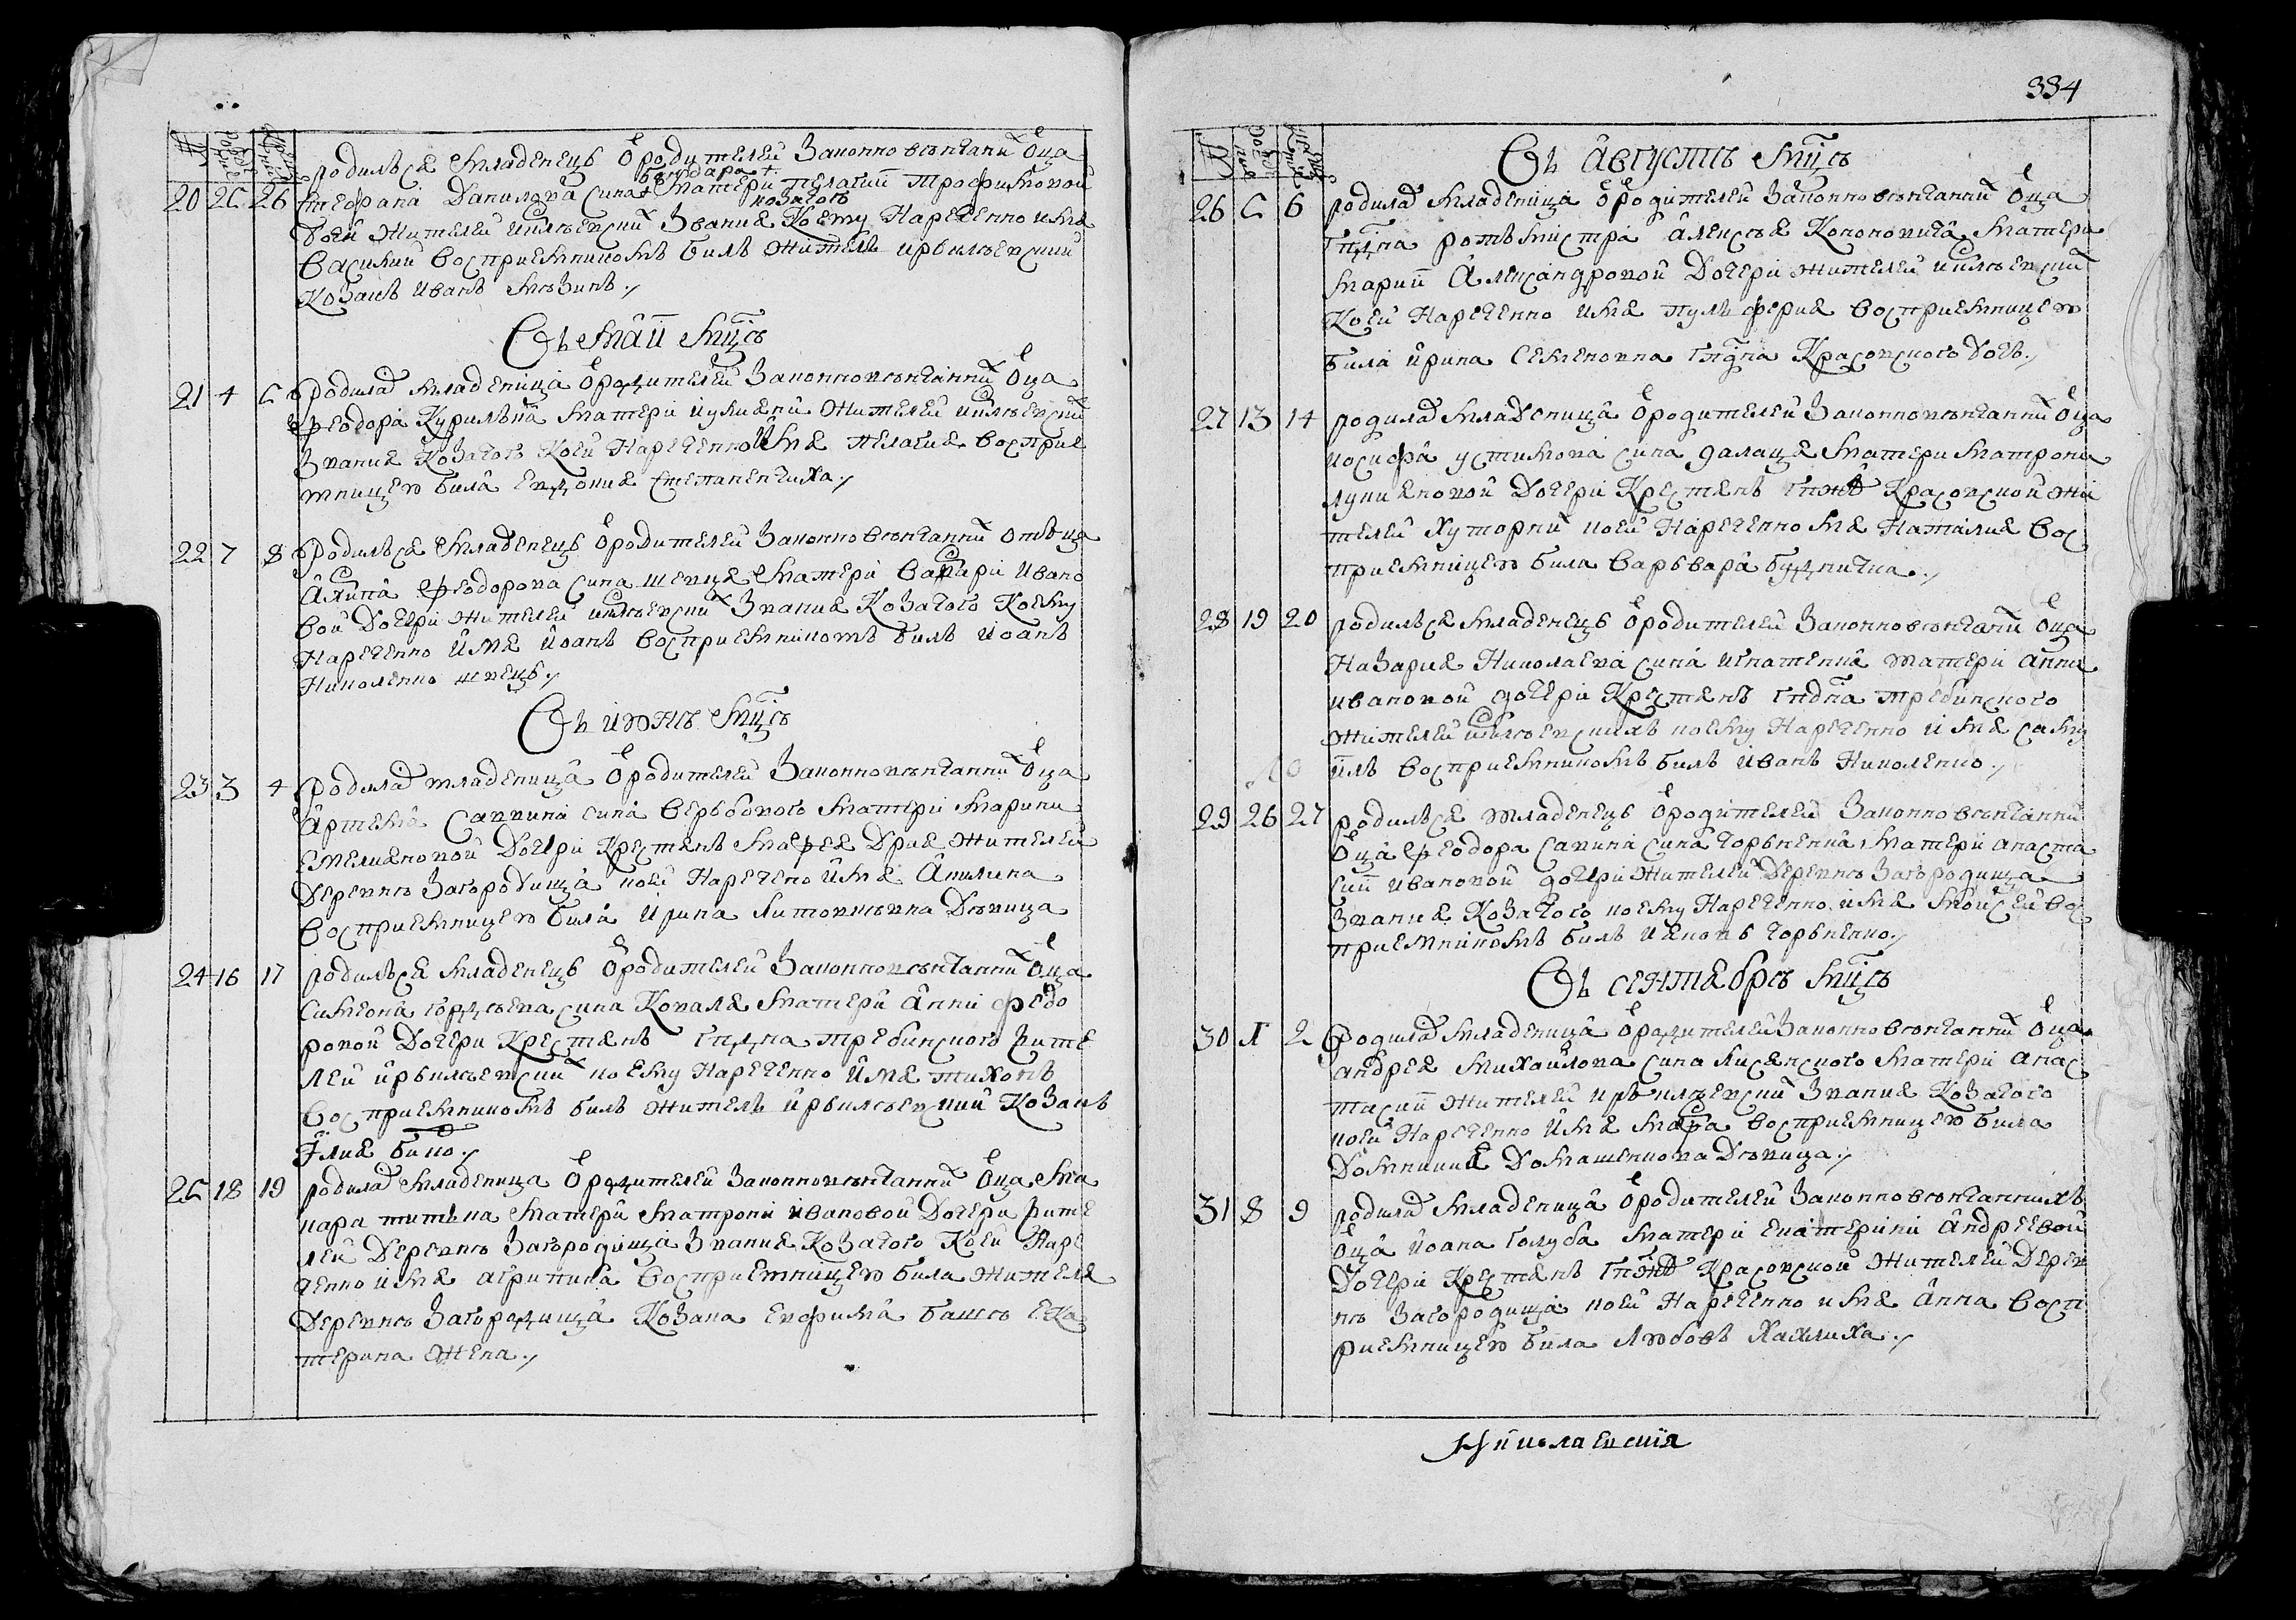 родилъся младенецъ ѿ родителей законновѣнчаних ѿца
бондара +
20 25 26 стефана Данилова сина матери пелагии трофимовой
козачого
дочери жителей ирклѣевских звания коему наречено имя
василий восприемникомъ билъ житель ирклѣевский
козакъ иванъ мазинъ
Въ маии мцѣ
21 4 5 родилас младеница ѿ родителей законновѣнчанних ѿца
феодора курилѣна матери иулиянии жителей ирклѣевских
звания козачого коей нареченно имя пелагия восприе
мницею била евдокия степаненчиха
22 7 8 родилъся младенецъ ѿ родителей законновѣнчанних отъца
алипа феодорова сина шевця матери варвари ивано
вой дочери жителей ирклѣевских звания козачого коему
нареченно имя иоанъ восприемникомъ билъ иоанъ
николенко швецъ
Въ июнѣ мцѣ
23 3 4 родилас младеница ѿ родителей законновѣнчанних ѿца
артема саввина сина вербового матери марини
емелияновой дочери крестянъ жителей
деревнѣ загородища коей наречено имя акилина
восприемницею била ирина литовкѣвна дѣвица
24 16 17 родилъся младенецъ ѿ родителей законновѣнчанних ѿца
симеона гордѣева сина коваля матери анни федо
ровой дочери крестянъ гпдна требинского жите
лей ирклѣевских коему нареченно имя тихонъ
восприемникомъ билъ житель ирклѣевский козакъ
илия бико
25 18 19 родилас младеница ѿ родителей законновѣнчанних ѿца ма
кара титъка матери матрони ивановой дочери жите
лей деревнѣ загородища звания козачого коей наре
ченно имя агрипина восприемницею била жителя
деревнѣ загородища козака евфима башѣ ека
терина жена
334
Въ августѣ мцѣ
26 5 6 родилас младеница ѿ родителей законновѣнчанних ѿца
гпдна ротъмистра алексѣя кононовича матери
марии александровой дочери жителей ирклѣевских
коей нареченно имя пулъферия восприемницею
била ирина семеновна гпдна красовского дочь
27 13 14 родилас младеница ѿ родителей законновѣнчанних ѿца
иосифа устимова сина далаця матери матрони
лукияновой дочери крестянъ гпжѣ красовской жи
телей хуторних коей нареченно имя наталия вос
приемницею била варъвара будничка
28 19 20 родилъся младенецъ ѿ родителей законновѣнчаних ѿца
назария николаева сина игнатенка матери анни
ивановой дочери крестянъ гпдна требинского
жителей ирклѣевскихъ коему нареченно имя саму
илъ восприемникомъ билъ иванъ николенко
29 26 27 родилъся младенецъ ѿ родителей законновѣнчанних
ѿца феодора савина сина горъкенка матери анаста
сии ивановой дочери жителей деревнѣ загородища
звания козачого коему нареченно имя моисей вос
приемникомъ билъ иаковъ горъкенко
Въ сентябрѣ мцѣ
30 1 2 родилас младеница ѿ родителей законновѣнчанних ѿца
андрея михайлова сина лисянского матери анас
тасии жителей ирклѣевских звания козачого
коей нареченно имя мавра восприемницею била
домникия домашенкова дѣвица
31 8 9 родилас младеница ѿ родителей законновѣнчаннихъ
ѿца иоана голуба матери екатерини андреевой
дочери крестянъ гпжѣ красовской жителей дерев
нѣ загородища коей нареченно имя анна восп
риемницею била любовъ хахлиха
Николаевския